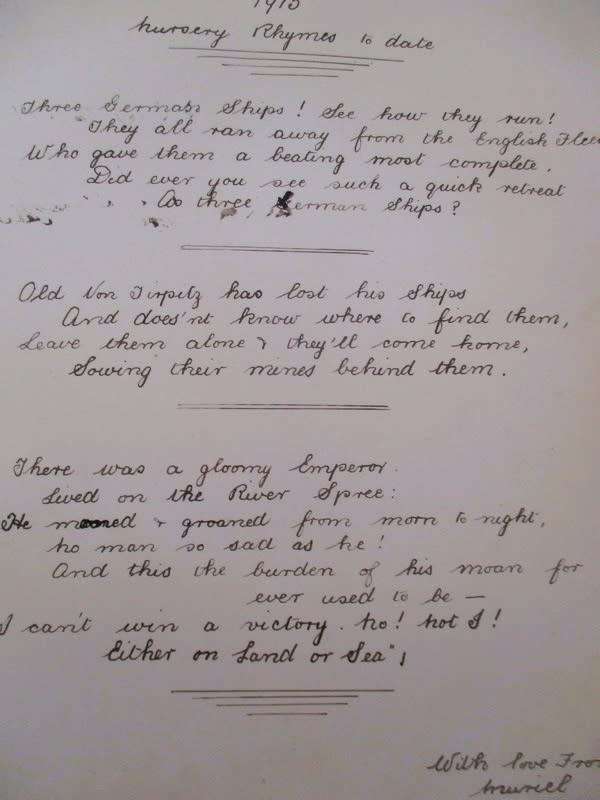 1915
Nursery Rhymes to date
Three German Ships! See how they run!
They all ran away from the English Fleet
Who gave them a beating most complete.
Did ever you see such a quick retreat
As three German Ships?
Old Von Tirpitz has lost his ships
And does'nt know where to find them,
Leave them alone & they'll come home,
Sowing their mines behind them.
There was a gloomy Emperor.
Lived on the River Spree:
He moaned & groaned from morn to night,
No man so sad as he!
And this the burden of his moan for
ever used to be —
I can't win a victory. No! Not I!
Either on Land or Sea";
With love From
Muriel